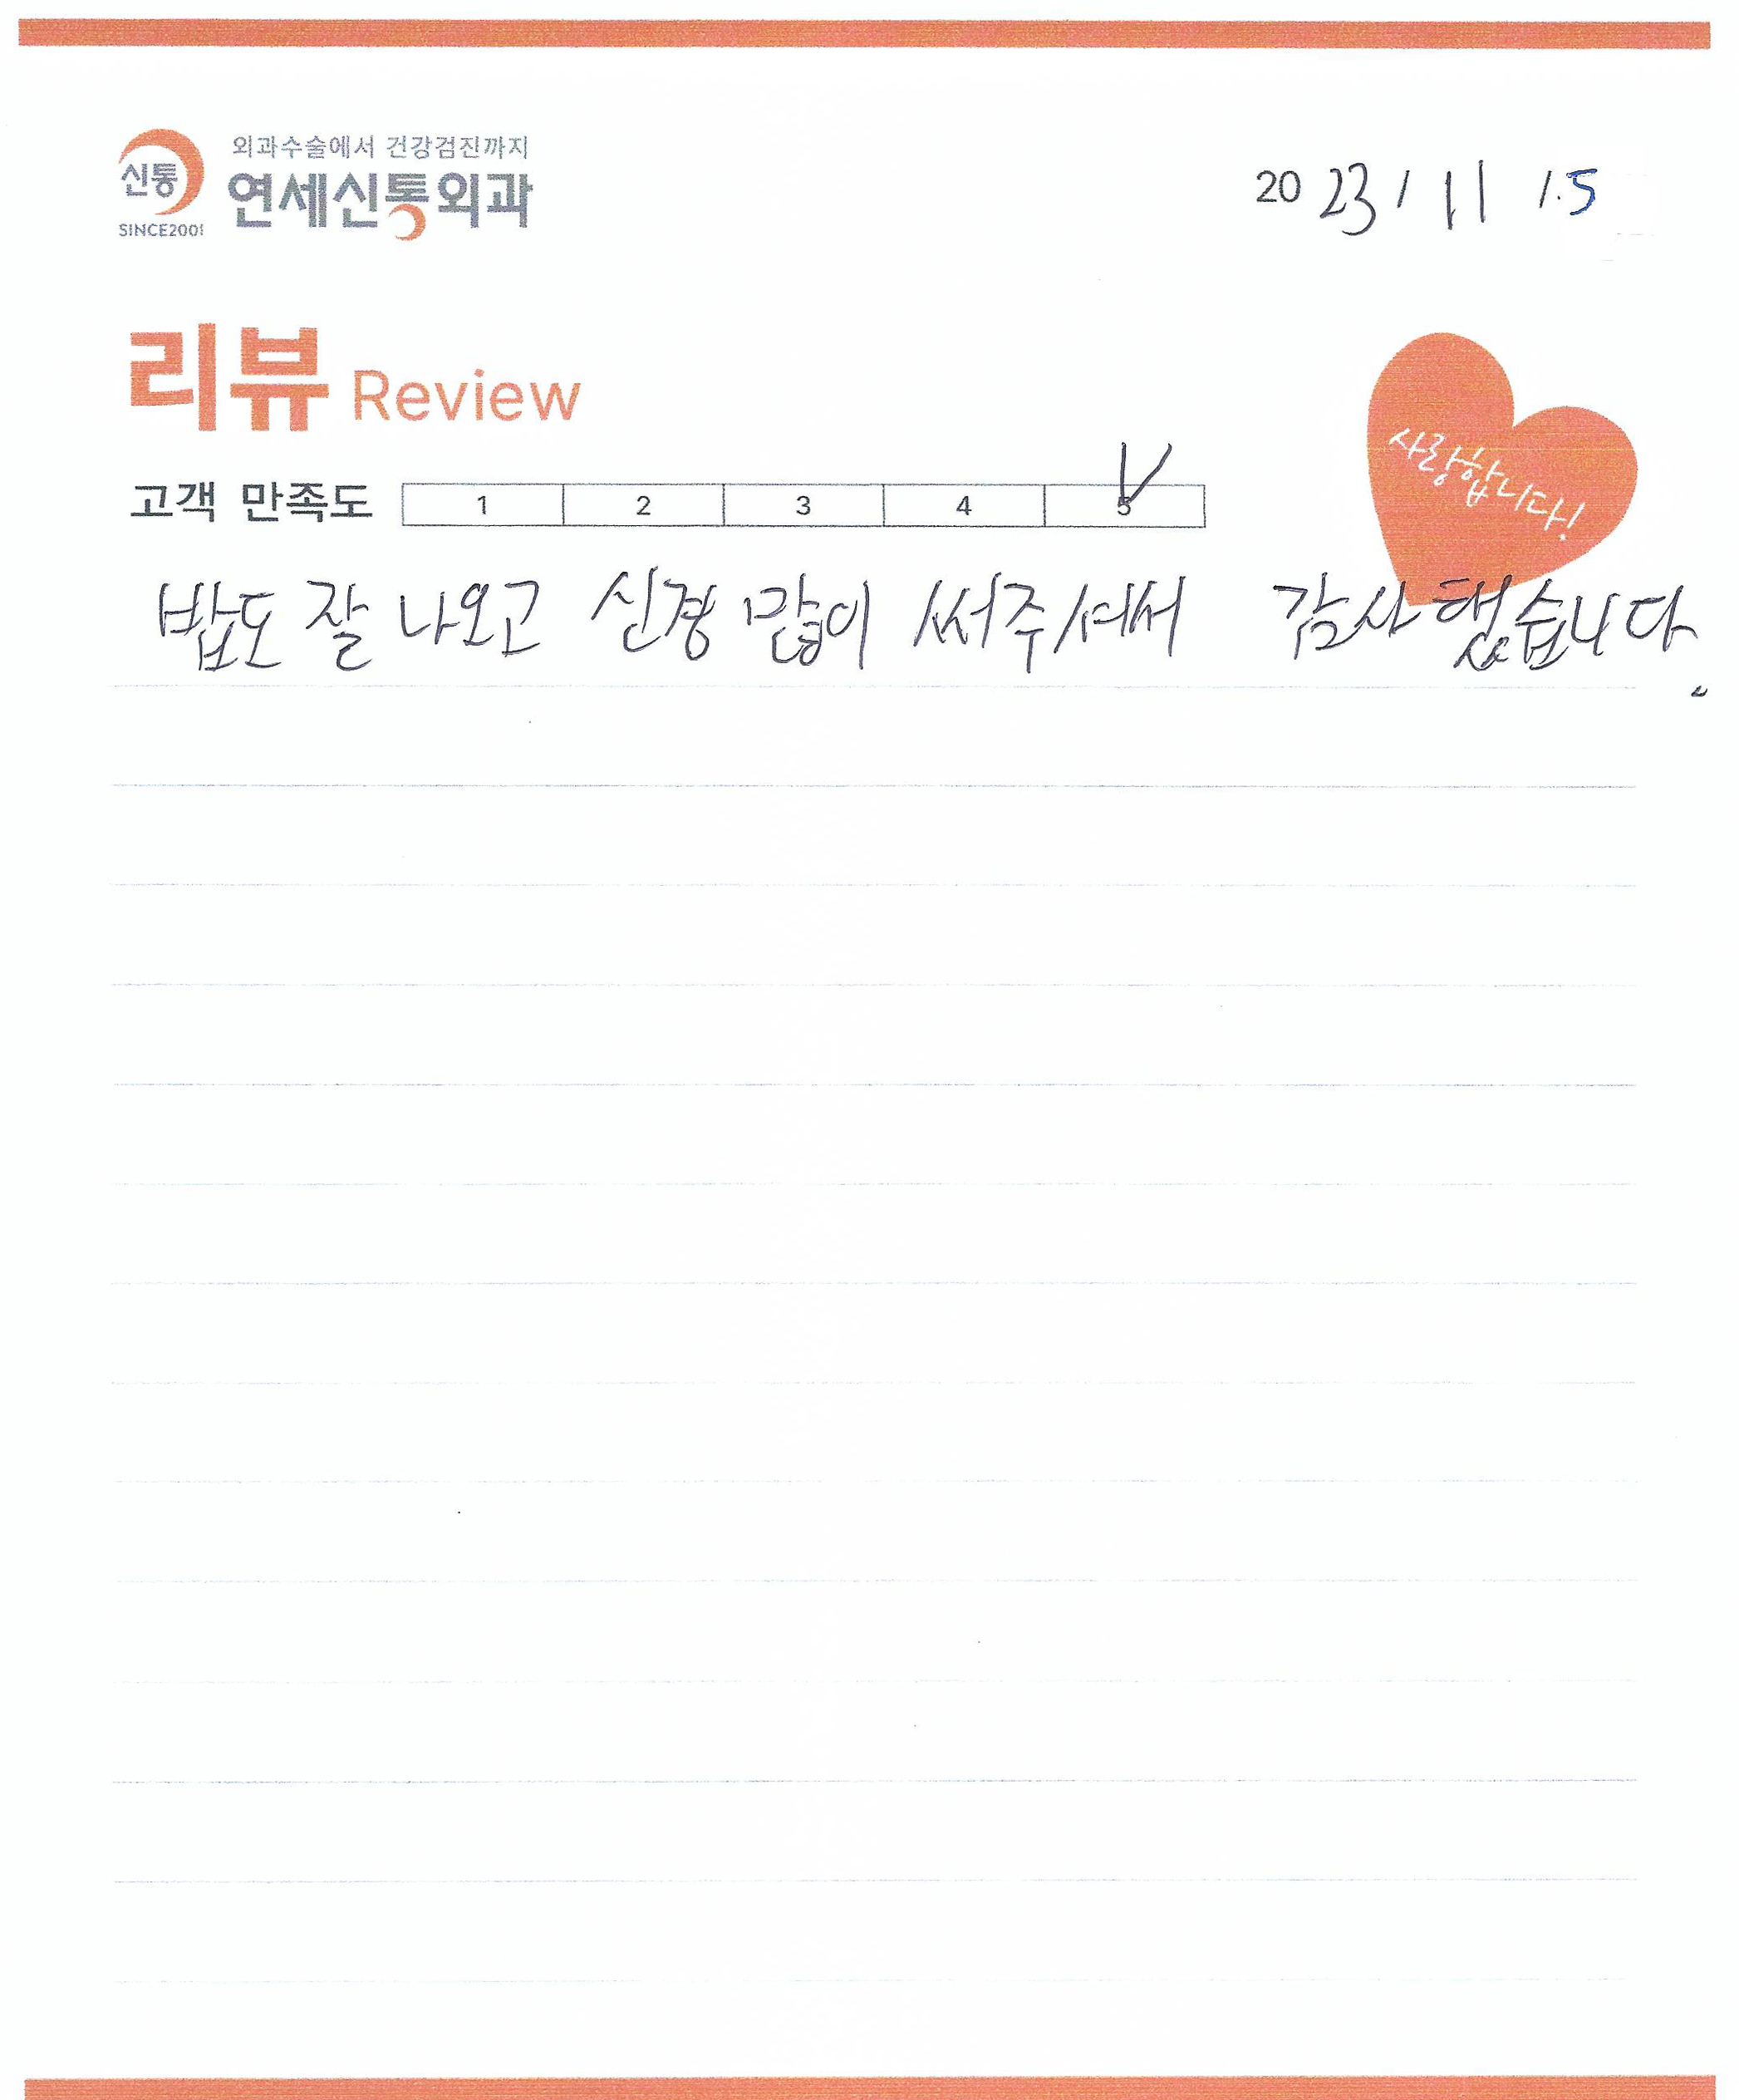 외과수술에서 건강검진까지
신통 연세신통외과
SINCE2001
2023 / 11 / .5
리뷰 Review
사랑합니다!
고객 만족도 1 2 3 4 5
밥도 잘 나오고 신경 많이 써주셔서 감사했습니다.